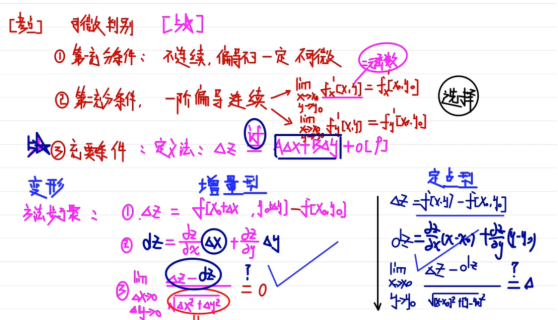 [考点] 可微判别 [15次]
① 第一充分条件：不连续,偏导不一定 不可微
=二元函数
② 第二充分条件, 一阶偏导连续
lim x→x₀ y→y₀ f'x[x,y] = f'x[x₀,y₀]
lim x→x₀ y→y₀ f'y[x,y] = f'y[x₀,y₀]
选择
③ 充要条件：定义法：ΔZ = AΔx+BΔy+o[ρ]
变形 增量型 定点型
方法步骤：① ΔZ = f[x₀+Δx, y₀+Δy]-f[x₀,y₀]
② dZ = ∂z/∂x Δx + ∂z/∂y Δy
③ lim Δx→0 Δy→0 ΔZ-dZ / √Δx²+Δy² ?= 0
ΔZ = f[x,y]-f[x₀,y₀]
dZ = ∂z/∂x (x-x₀)+∂z/∂y (y-y₀)
lim x→x₀ y→y₀ ΔZ-dZ / √(x-x₀)²+(y-y₀)² ?= Δ